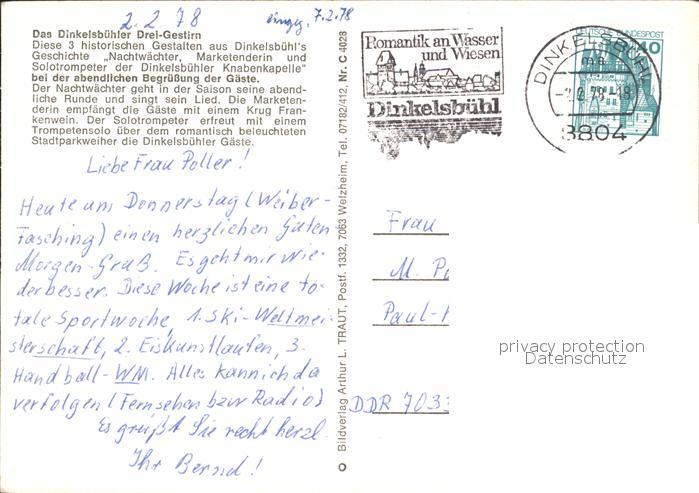 2.2.78
eingeg. 7.2.78
Das Dinkelsbühler Drei-Gestirn
Diese 3 historischen Gestalten aus Dinkelsbühl's
Geschichte „Nachtwächter, Marketenderin und
Solotrompeter der Dinkelsbühler Knabenkapelle"
bei der abendlichen Begrüßung der Gäste.
Der Nachtwächter geht in der Saison seine abend-
liche Runde und singt sein Lied. Die Marketen-
derin empfängt die Gäste mit einem Krug Fran-
kenwein. Der Solotrompeter erfreut mit einem
Trompetensolo über dem romantisch beleuchteten
Stadtparkweiher die Dinkelsbühler Gäste.
Liebe Frau Poller!
Heute am Donnerstag (Weiber-
Fasching) einen herzlichen Guten
Morgen-Gruß. Es geht mir wie-
der besser. Diese Woche ist eine to-
tale Sportwoche, 1. Ski-Weltmei-
sterschaft, 2. Eiskunstlaufen, 3.
Handball-WM. Alles kann ich da
verfolgen (Fernsehen bzw Radio)
Es grüßt Sie recht herzl.
Ihr Bernd!
Bildverlag Arthur L. TRAUT, Postf. 1332, 7063 Welzheim, Tel. 07182/412, Nr. C 4028
Romantik an Wasser
und Wiesen
Dinkelsbühl
DINKELSBÜHL
ma
-2.2.78-18
8804
DEUTSCHE BUNDESPOST
40
Frau
M. Po
Paul-
DDR 703
privacy protection
Datenschutz